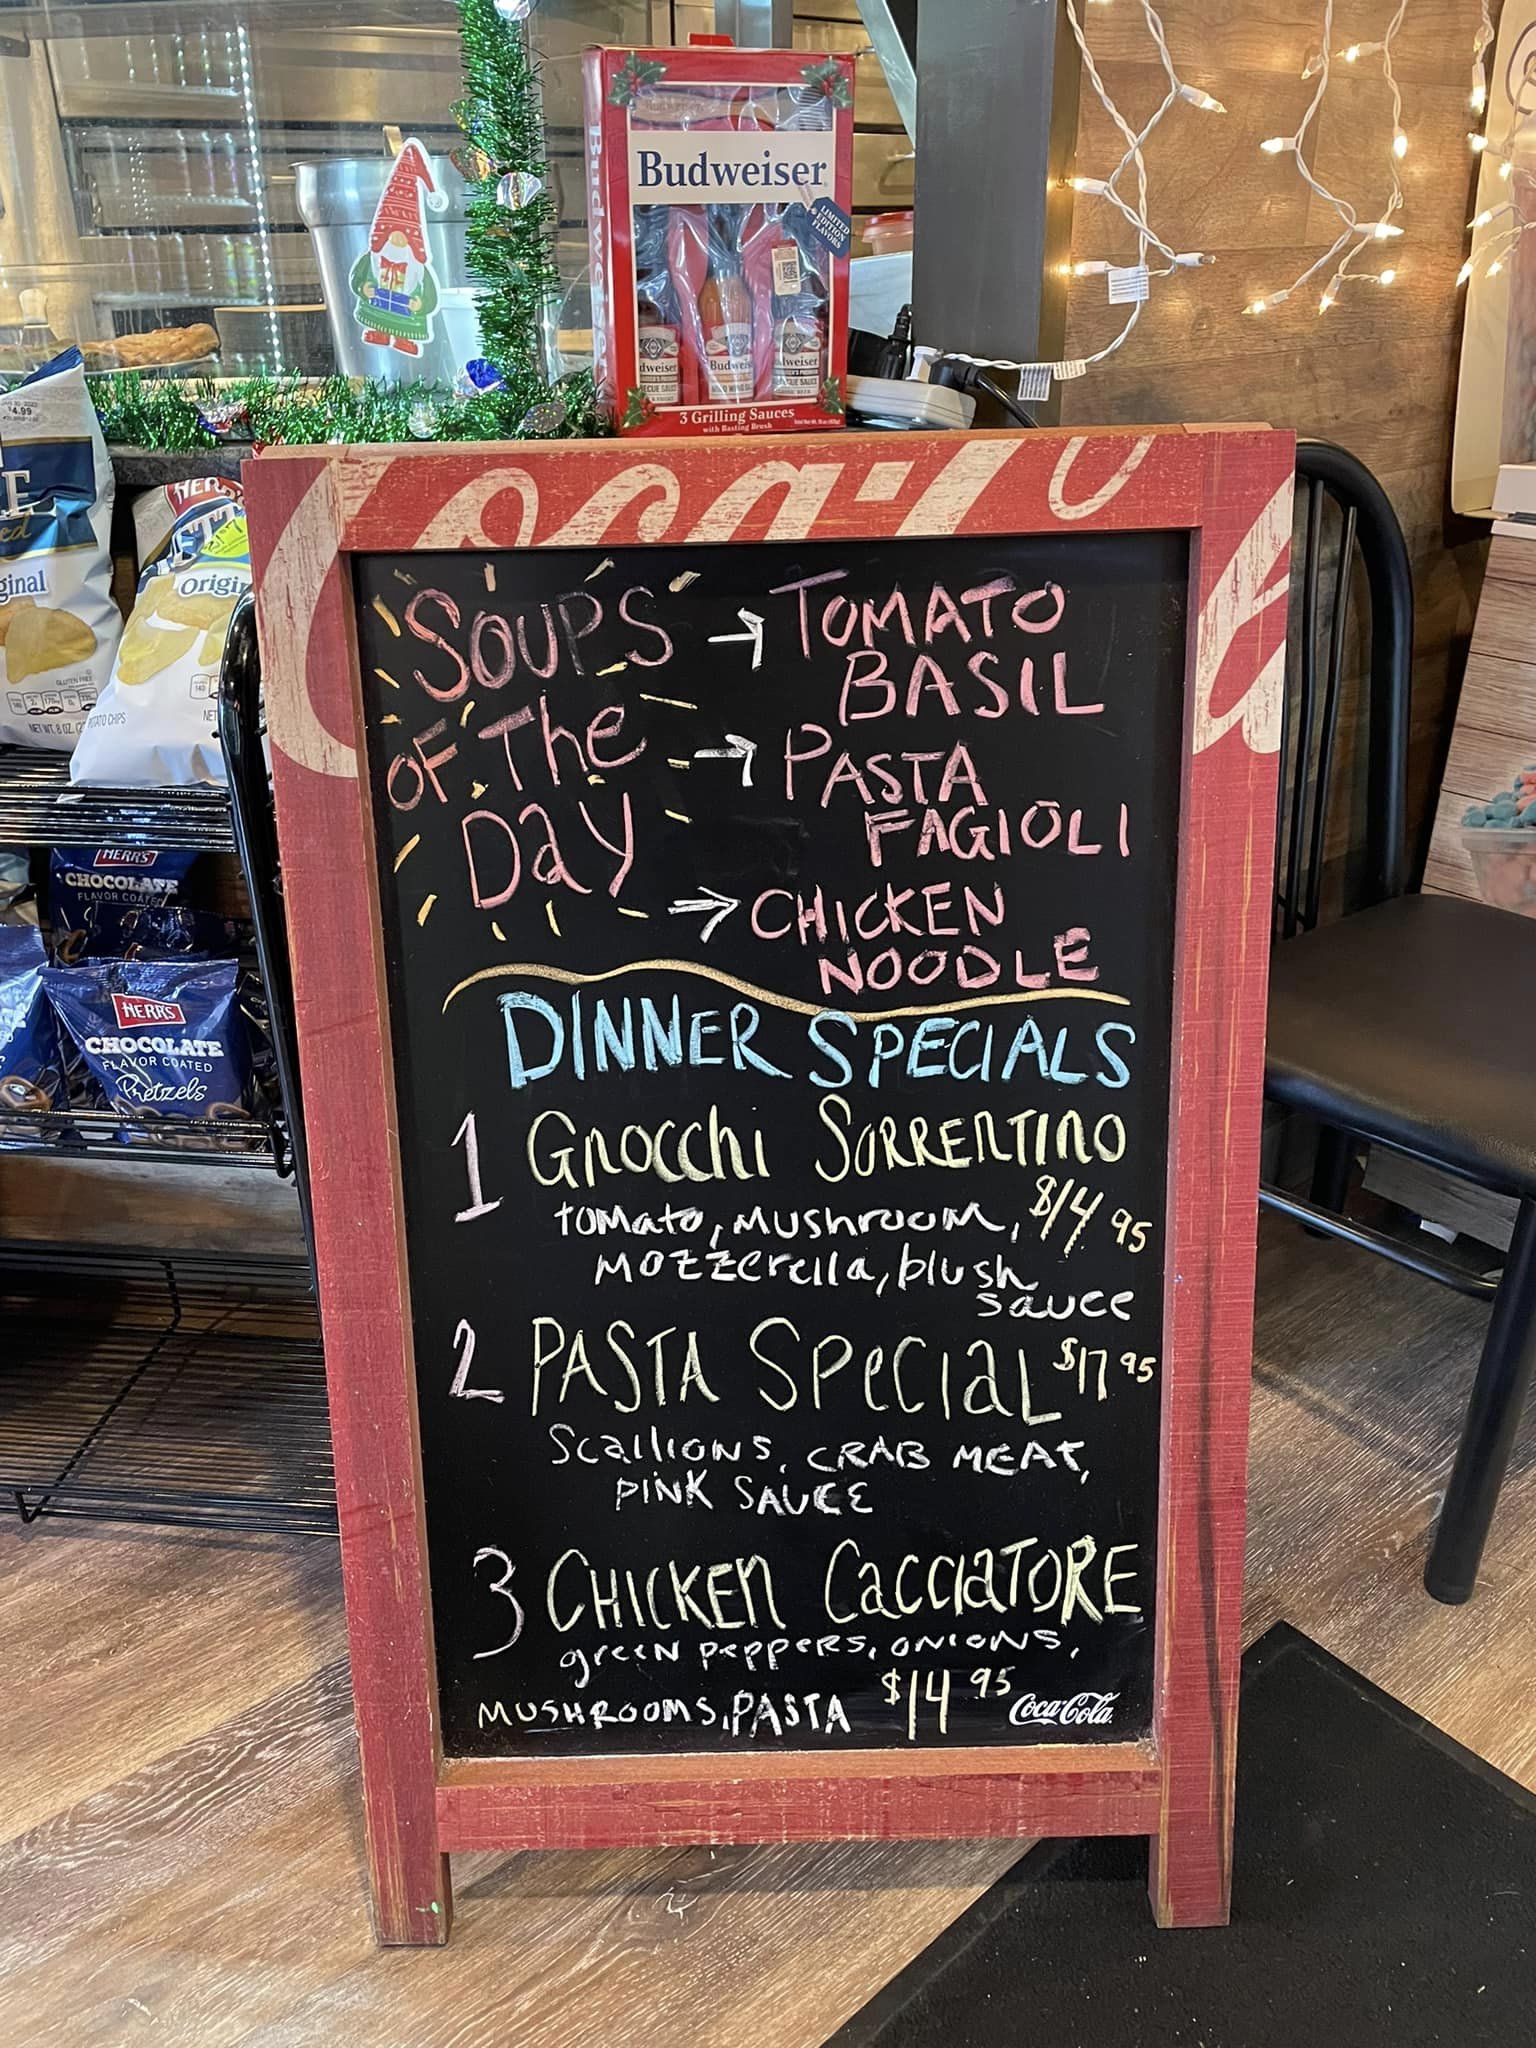 Budweiser
Budweiser
LIMITED
EDITION
FLAVORS
Budweiser
3 Grilling Sauces
with Basting Brush
$4.99
Original
GLUTEN FREE
NET WT. 8 OZ.
HERR'S
Original
POTATO CHIPS
HERR'S
CHOCOLATE
FLAVOR COATED
HERR'S
CHOCOLATE
FLAVOR COATED
Pretzels
Coca-Co
SOUPS → TOMATO
BASIL
OF The → PASTA
FAGIOLI
Day → CHICKEN
NOODLE
DINNER SPECIALS
1 Gnocchi SORRENTINO
tomato, mushroom, $14 95
mozzerella, blush
sauce
2 PASTA Special $17 95
Scallions, CRAB MEAT,
PINK SAUCE
3 CHICKEN CacciaTORE
green peppers, onions,
MUSHROOMS, PASTA $14 95
Coca-Cola